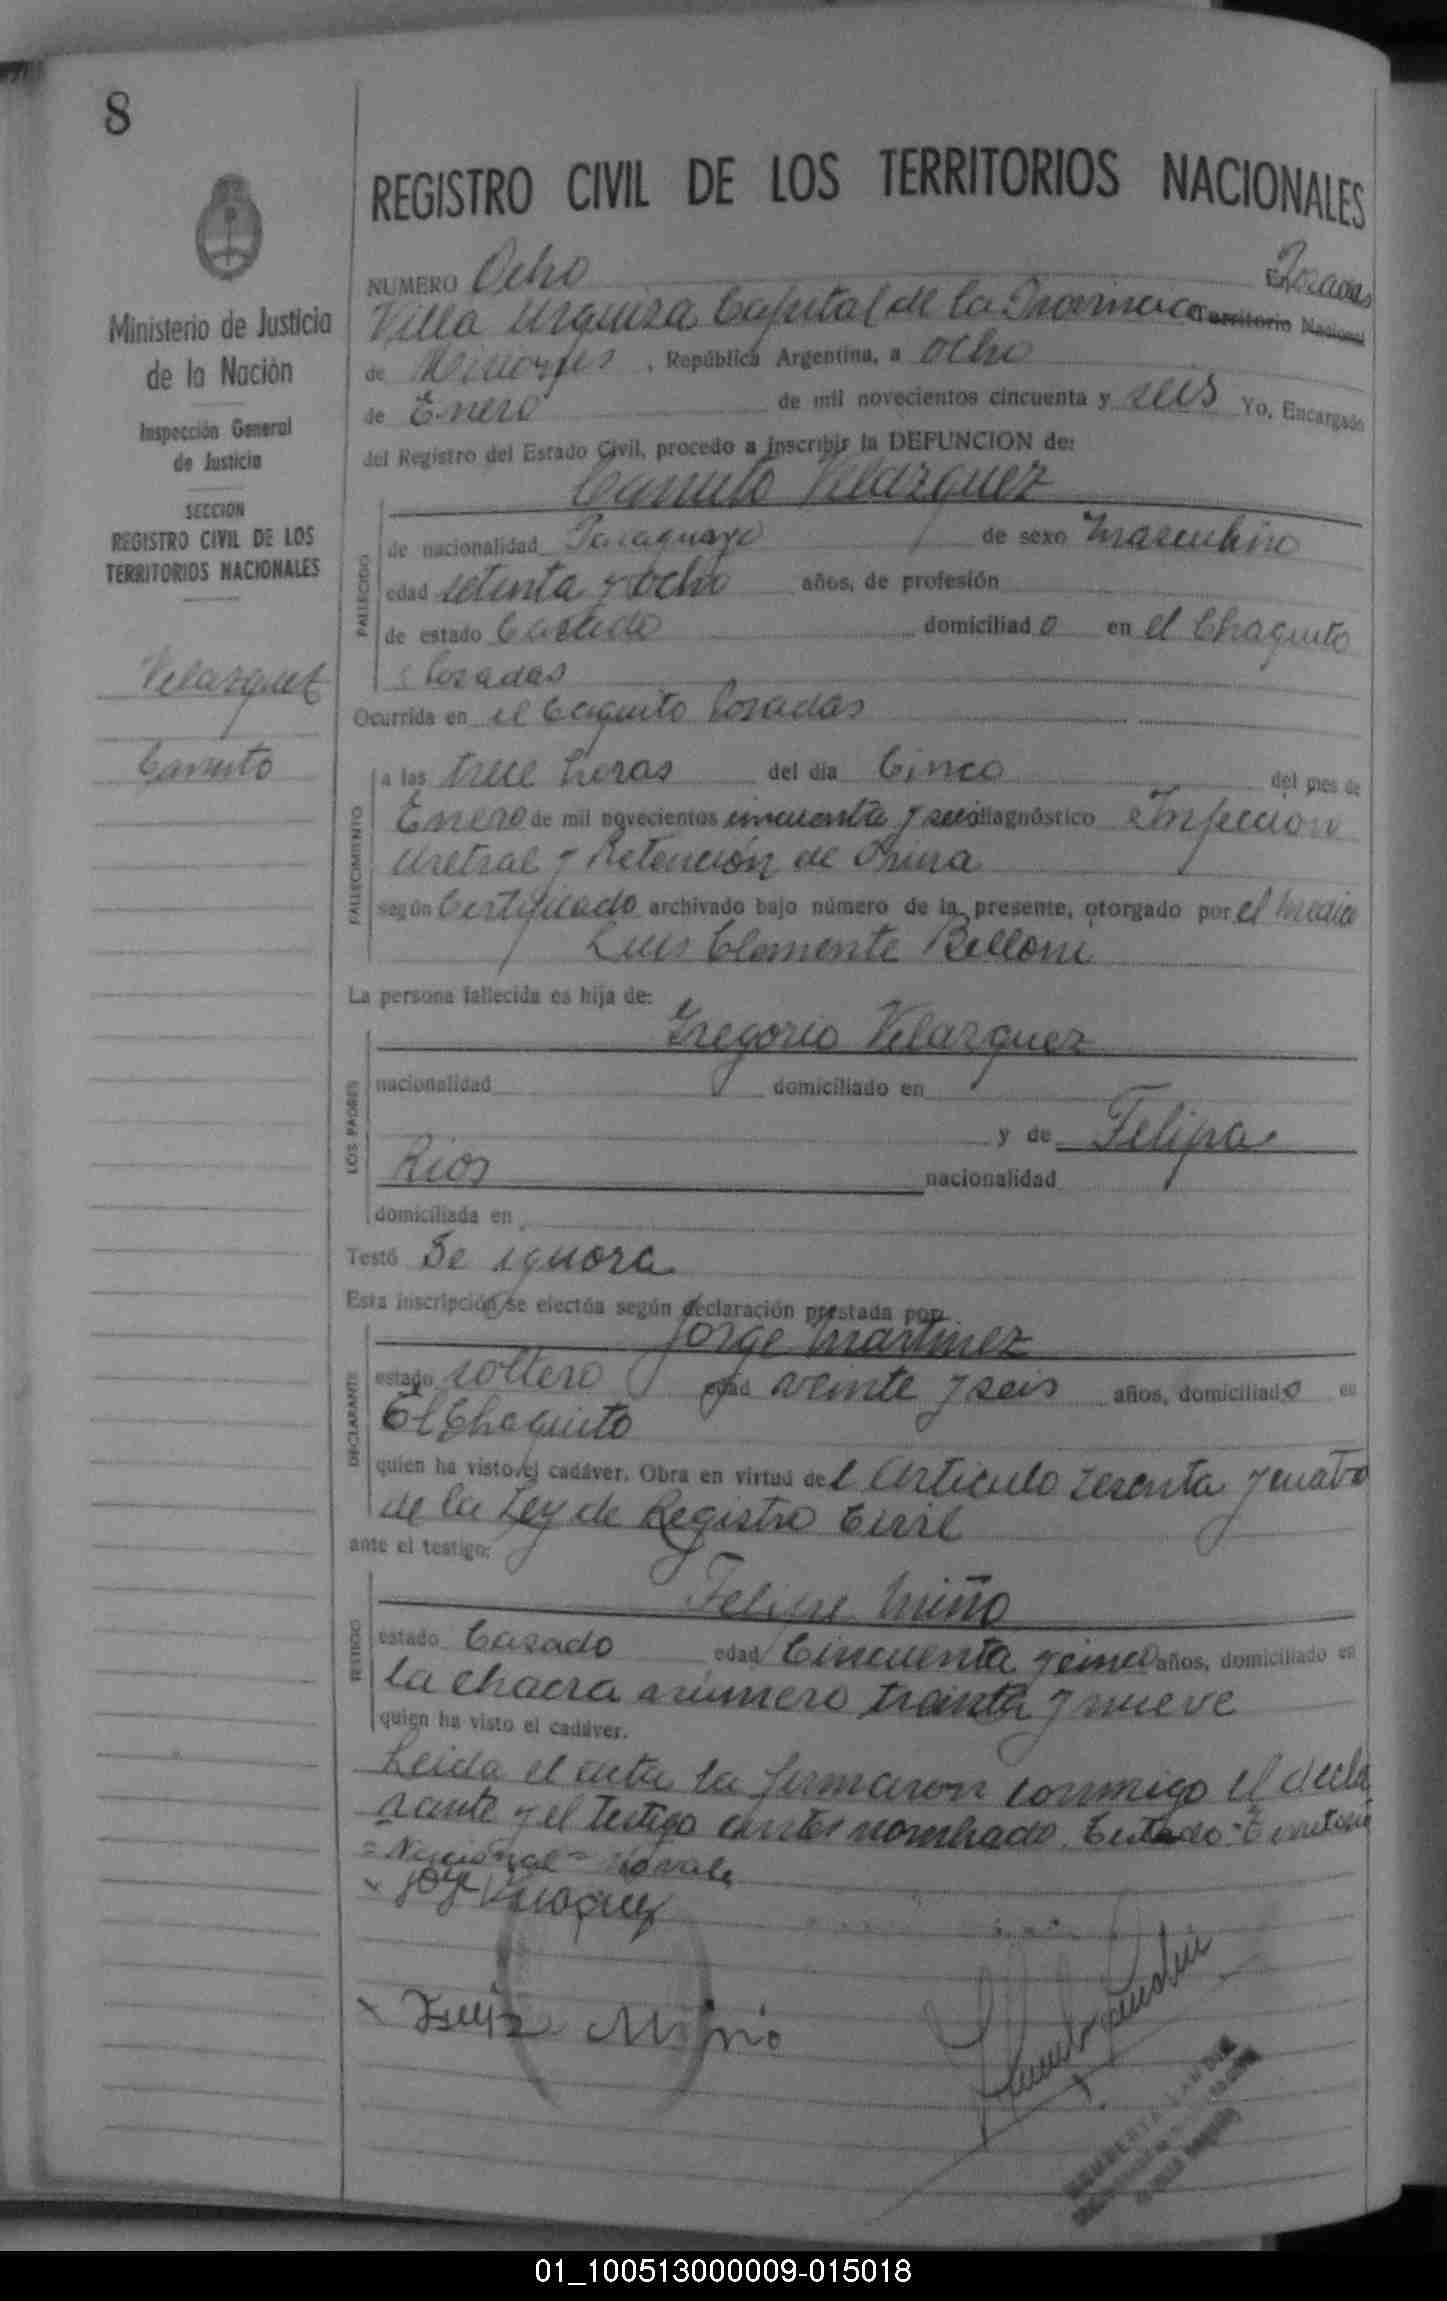 8
Ministerio de Justicia
de la Nación
Inspección General
de Justicia
SECCION
REGISTRO CIVIL DE LOS
TERRITORIOS NACIONALES
Velazquez
Canuto
REGISTRO CIVIL DE LOS TERRITORIOS NACIONALES
NUMERO Ocho En Posadas
Villa Urquiza Capital de la Provincia Territorio Nacional
de Misiones, República Argentina, a ocho
de Enero de mil novecientos cincuenta y seis Yo, Encargado
del Registro del Estado Civil, procedo a inscribir la DEFUNCION de:
Canuto Velazquez
FALLECIDO
de nacionalidad Paraguayo de sexo Masculino
edad setenta y ocho años, de profesión
de estado Casado domiciliado en el Chaquito
Posadas
Ocurrida en el Caquito Posadas
FALLECIMIENTO
a las trece horas del día Cinco del mes de
Enero de mil novecientos cincuenta y seis diagnóstico Infección
Uretral y Retención de Orina
según Certificado archivado bajo número de la presente, otorgado por el Medico
Luis Clemente Belloni
La persona fallecida es hija de:
LOS PADRES
Gregorio Velazquez
nacionalidad domiciliado en
y de Felipa
Rios nacionalidad
domiciliada en
Testó Se ignora
Esta inscripción se efectúa según declaración prestada por
DECLARANTE
Jorge Martinez
estado soltero edad veinte y seis años, domiciliado en
El Chaquito
quien ha visto el cadáver. Obra en virtud del Articulo sesenta y cuatro
de la Ley de Registro Civil
ante el testigo:
TESTIGO
Felipe Miño
estado Casado edad Cincuenta y cinco años, domiciliado en
la chacra número treinta y nueve
quien ha visto el cadáver.
Leida el acta la firmaron conmigo el decla
rante y el testigo antes nombrado. Testado = Territorio
= Nacional = No vale
Miño
01_100513000009-015018